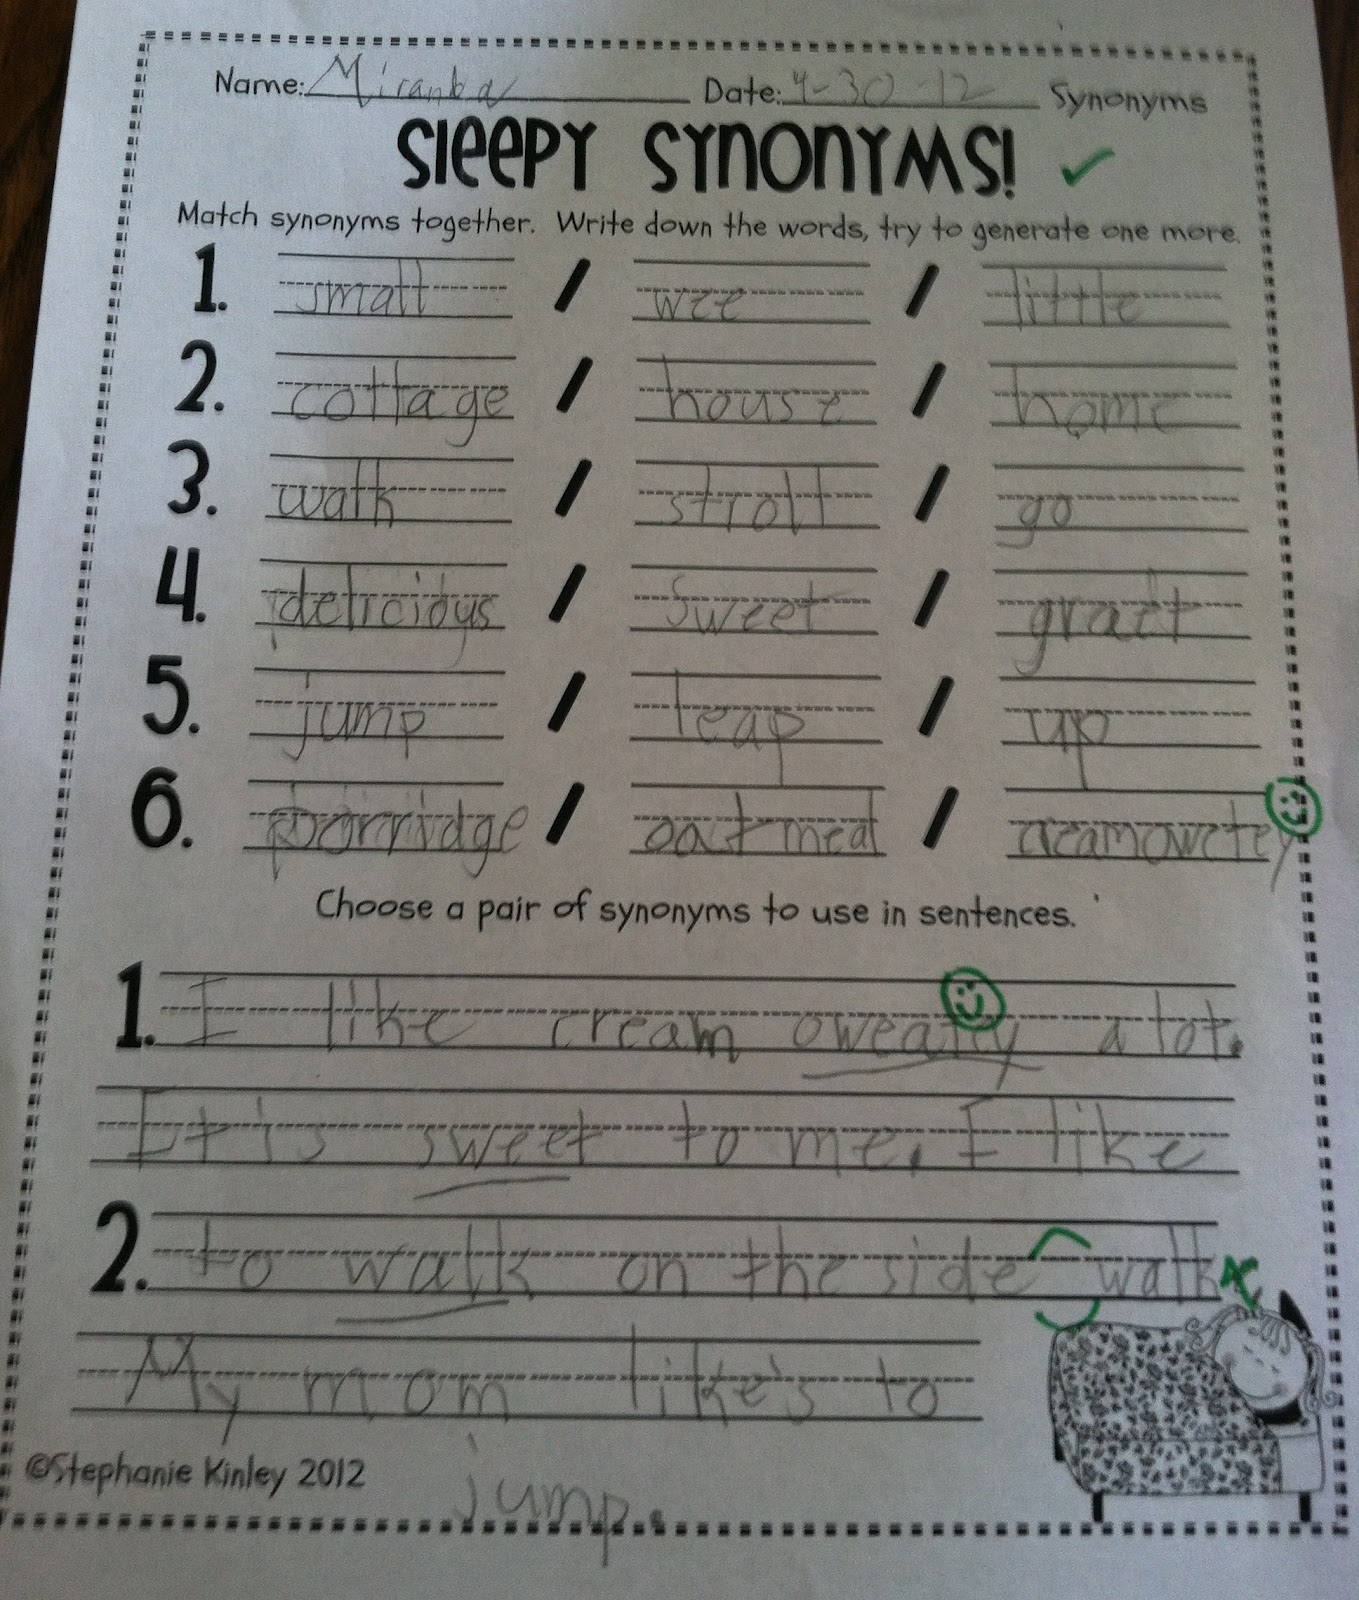 Name: Miranba Date: 4-30-12 Synonyms
Sleepy Synonyms!
Match synonyms together. Write down the words, try to generate one more.
1. small / wee / little
2. cottage / house / home
3. walk / stroll / go
4. delicious / sweet /
5. jump / leap / up
6. porridge / oatmeal /
Choose a pair of synonyms to use in sentences.
1. I like cream a lot.
It is sweet to me. I like
2. to walk on the side walk
My mom like's to
©Stephanie Kinley 2012
jump.